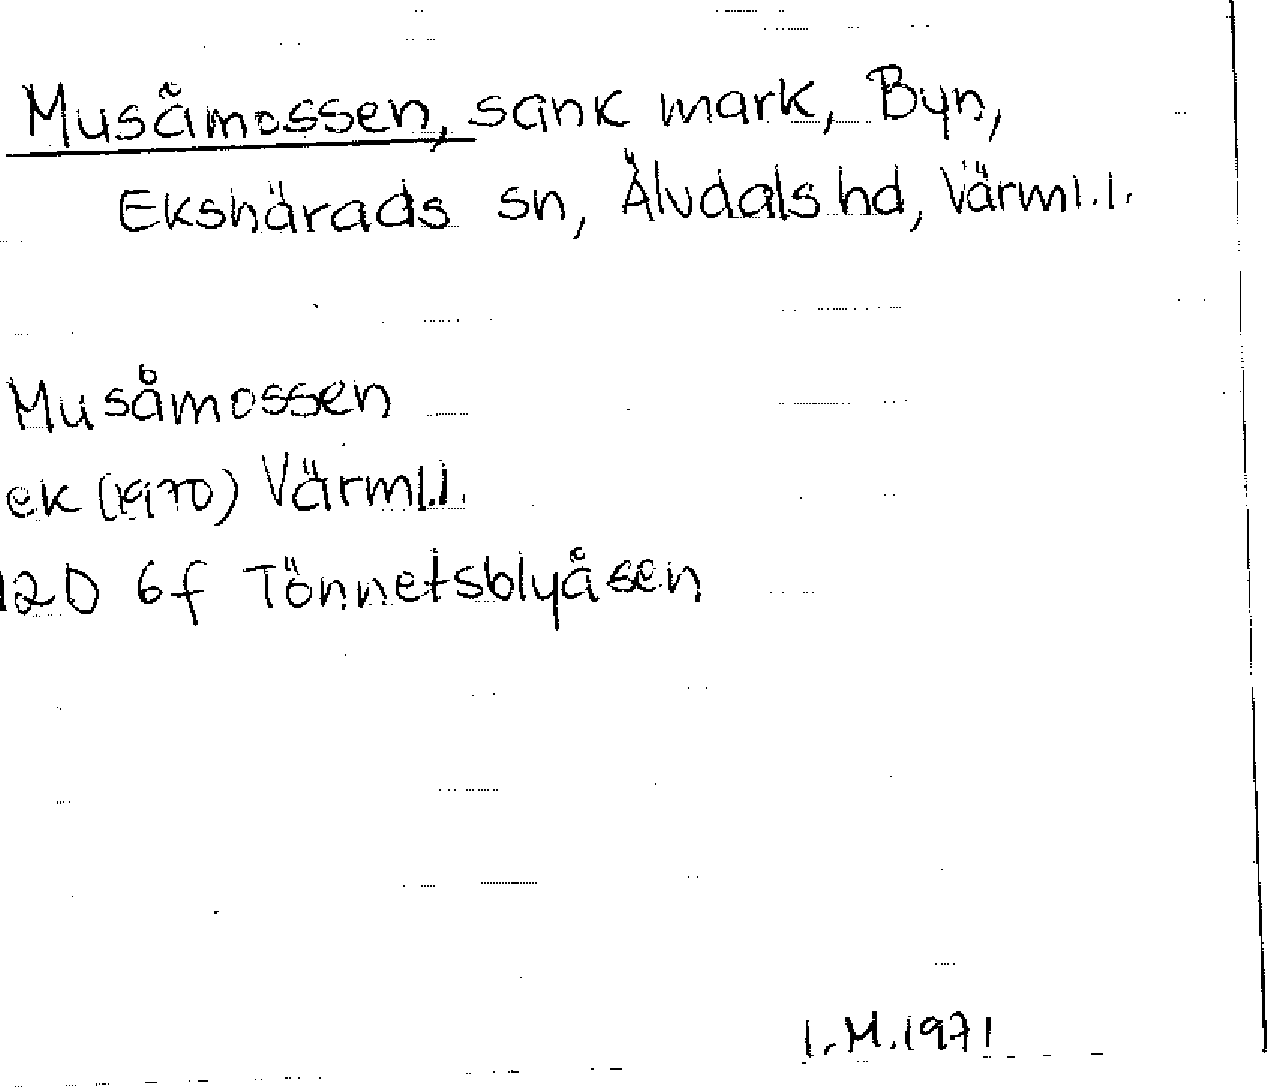 Musåmossen, sank mark, Byn,
Ekshärads sn, Älvdals hd, Värml.l.
Musåmossen
ek (1970) Värml.l.
12D 6f Tönnetsblyåsen
I.M.1971